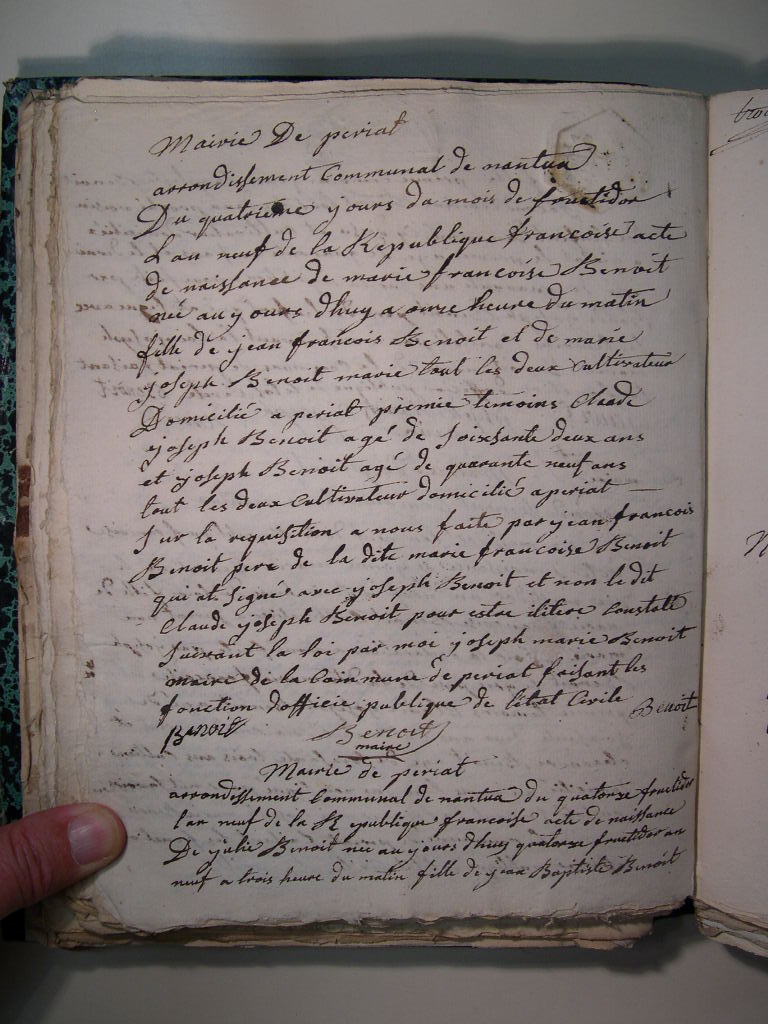 Mairie De periat
arrondissement Communal de nantua
Du quatrieme yours du mois de fructidor
Lan neuf de la Republique francoise acte
de naissance de marie francoise Benoit
née au yours dhuy a onze heure du matin
fille de jean francois Benoit et de marie
yoseph Benoit marie tout les deux Cultivateur
Domicilié a periat premie temoins Claude
yoseph Benoit agé de soixsante deux ans
et yoseph Benoit agé de quarante neuf ans
tout les deux Cultivateur domicilié a periat
sur la requisition a nous faite par jean francois
Benoit pere de la dite marie francoise Benoit
qui at signé avec yoseph Benoit et non le dit
Claude yoseph Benoit pour estre ilitere Constaté
suivant la loi par moi yoseph marie Benoit
maire de la Commune de periat faisant les
fonction dofficie publique de létat Civile
Benoit Benoit Benoit
maire
Mairie de periat
arrondissement Communal de nantua du quatorze fructidor
lan neuf de la Republique francoise acte de naissance
De julie Benoit née au yours dhuy quatorze fructidor an
neuf a trois heure du matin fille de jean Baptiste Benoit